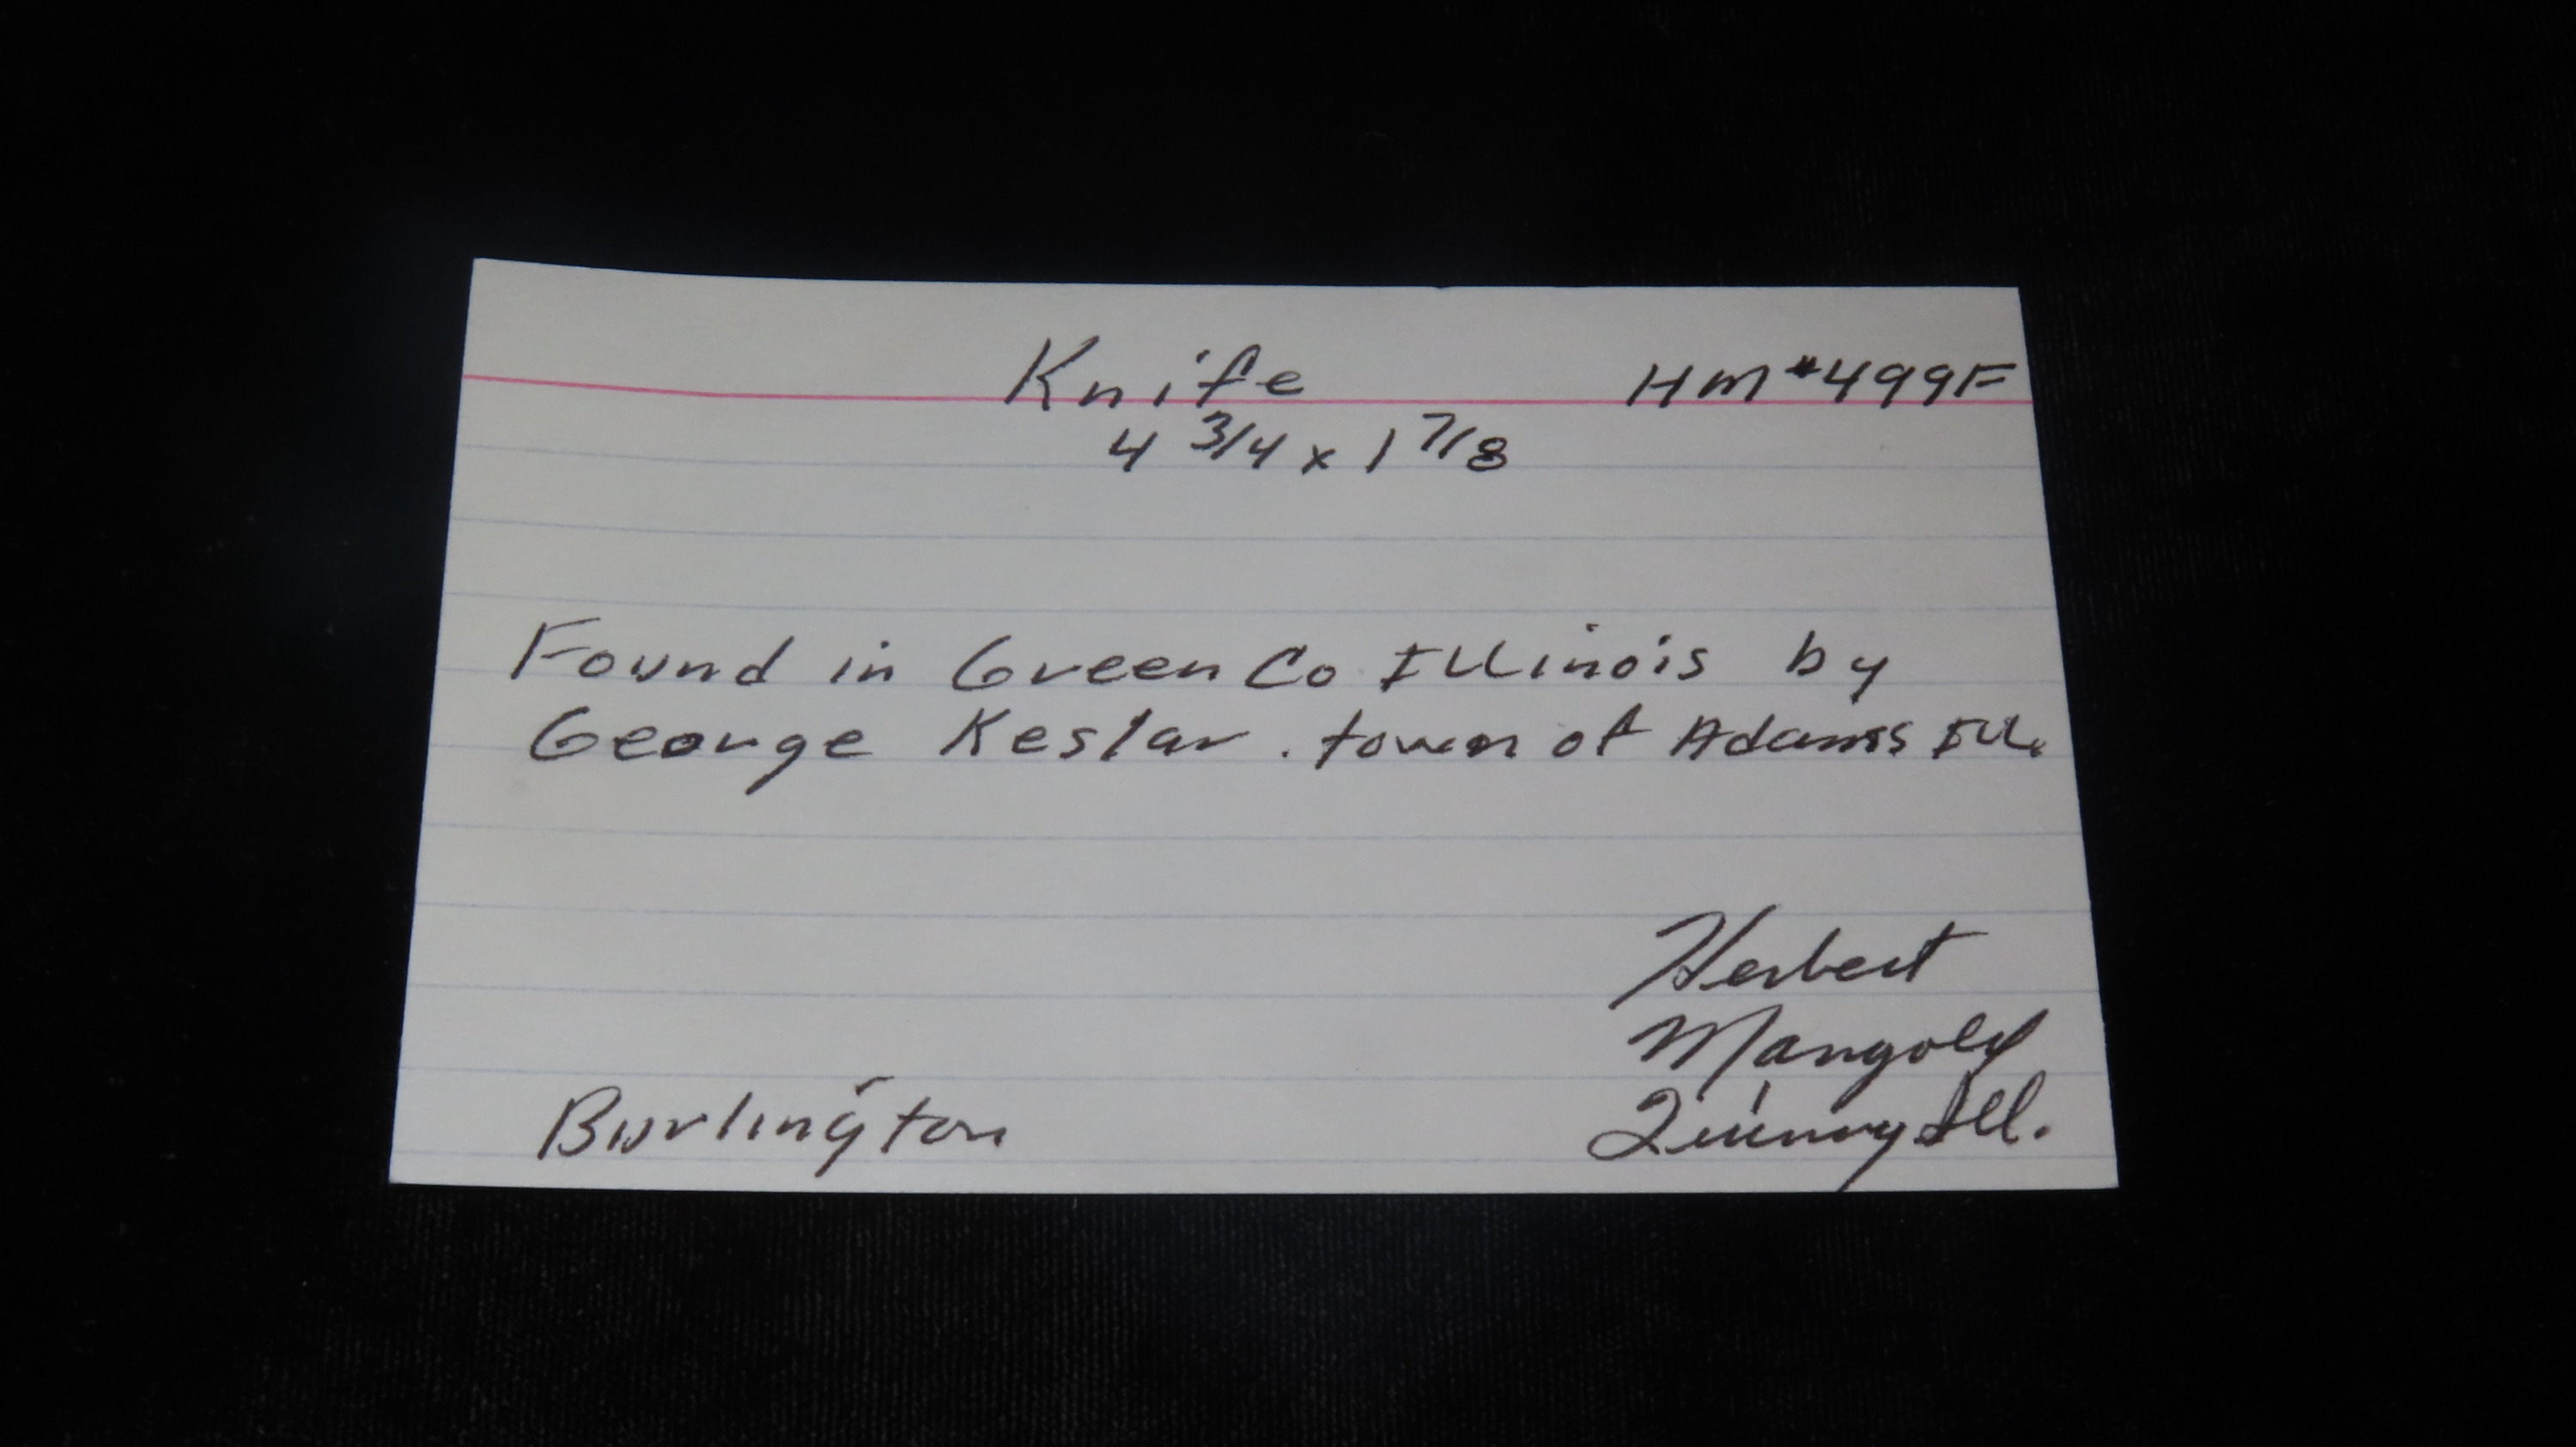 Knife HM#499F
4 3/4 x 1 7/8
Found in Green Co Illinois by
George Keslar. town of Adams Ill.
Herbert
Mangold
Burlington Quincy Ill.